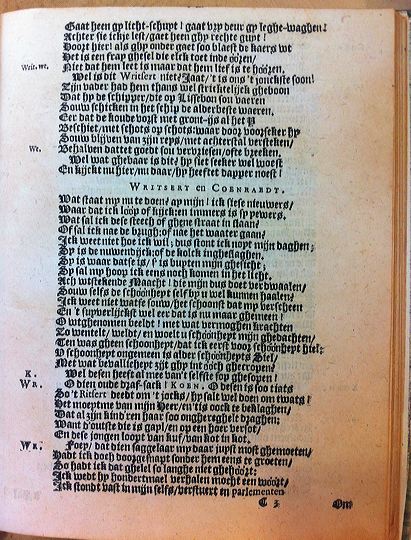 Gaat heen gy licht-schuyt! gaat vry deur gy leghe-waghen!
Achter sie ickje lest/ gaet heen ghy rechte guyt!
Hoort hier! als ghy onder gaet soo blaest de kaers uyt
Het is een fray ghesel die elck toet inde óóren/
Writ. we. Niet dat hem leet is maar dat hem lief is te hóóren.
Wel is dit Writsert niet? Jaat/ 't is ons 't jonckste soon!
Zijn vader had hem thans wel strickelijck gheboon
Dat hy de schipper/ die op Lissebon sou vaeren
Souw schicken in het schip de alderbeste waeren.
Eer dat de koude vorst met gront-ijs al het
Beschiet/ met schots op schots: waar door voorseker hy
Souw blijven van zijn reys/ met achterstal versteken/
We. Behalven dattet goedt sou vervriesen/ ofte breeken.
Wel wat ghebaar is dit? hy siet seeker wel woest
En kijckt nu hier/ nu daar/ hy heeftet dapper noest!
WRITSERT en COENRAEDT.
Wat staat my nu te doen? ay mijn! ick siese nieuwers/
Waar dat ick lóóp of kijck: en immers is sy yewers.
Wat sal ick dese steech of ghene straat in slaan?
Of sal ick nae de brugh: of nae het waater gaan?
Ick weet niet hoe ick wil; dus stont ick noyt mijn daghen;
Sy is de nuwendijck: of de kolck ingheslaghen.
Sy is waar datse is/ s' is buyten mijn ghesicht;
Sy sal my hoop ick eens noch komen in het licht.
Ach uytstekende Maacht! die mijn dus doet verdwaalen/
Souw selfs de schóónheyt self by u wel kunnen haalen?
Ick weet niet watse souw/ her schoonst dat my verscheen
En 't superlijckst wel eer dat is nu maar ghemeen!
O uytghenomen beeldt! met wat vermoghen krachten
Zo wentelt/ weldt/ en woelt u schóónheyt mijn ghedachten/
Ten was gheen schoonheyt/ dat ick eerst voor schóónheyt hiel;
U schoonheyt ongemeen is alder schóónheyts Siel/
Met wat bevallicheyt zijt ghy int óóch ghecropen?
K. Wel desen heeft al mee van 't selfste sop ghesopen!
WR. O dien oude draf-sack! KOEN. O desen is soo tiats
So 't Ritsert deedt om 't jocks/ hy salt wel doen om twats!
Het moeyt me van mijn Heer/ en 't is oock te beklaghen/
Dat al zijn kind'ren haar soo onghereghelt draghen;
Want d'outste die is gapl/ en op een hoer versot/
En dese jongen loopt van kuf/ van kot in kot.
WR. Foey/ dat dien saggelaar my daar juyst most ghemoeten/
Hadt ick doorgesnapt sonder hem eens te groeten/
So hadt ick dat ghelel so langhe niet ghehóórt:
Ick wedt hy hondertmael verhalen mocht een wóórt/
Ick stondt vast in mijn selfs/ verstuert en parlementen
C 3 Om